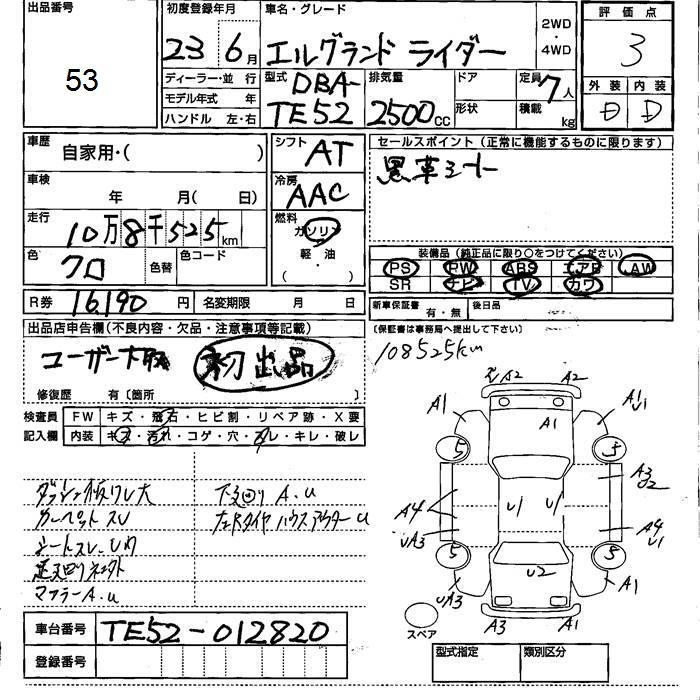 出品番号
53
初度登録年月
23 6月
車名・グレード
エルグランド ライダー
2WD
・
4WD
評価点
3
外装 内装
D D
ディーラー・並 行
モデル年式 年
ハンドル 左・右
型式 DBA-
TE52
排気量
2500cc
ドア
形状
定員 7人
積載 kg
車歴
自家用・( )
車検
年 月( 日)
走行
10万8千525km
色
クロ
色替
色コード
シフト
AT
冷房
AAC
燃料
ガソリン
軽・油
( )
セールスポイント(正常に機能するものに限ります)
黒革シート
装備品(純正品に限り○をつけてください)
PS PW ABS エアB AW
SR ナビ TV カワ
R券 16,190 円 名変期限 月 日
新車保証書 有・無 後日品
(保証書は事務局へ提出して下さい)
出品店申告欄(不良内容・欠品・注意事項等記載)
ユーザー下取 初出品
修復歴 有〔箇所 〕
108525km
検査員
記入欄
FW キズ・飛石・ヒビ割・リペア跡・X要
内装 キズ・汚れ・コゲ・穴・スレ・キレ・破レ
ダッシュ板ワレ大 下廻り A.U
カーペットスレ 左Rタイヤハウスアウター U
シートスレ
マフラー A.U
A2 A2
A1 A1 A1
U1
5 5
A3
U2
A4 U1 U1 A4
U1
UA3
5 5
U2
UA3 A1
A3 A1
スペア
車台番号 TE52-012820
登録番号
型式指定 類別区分